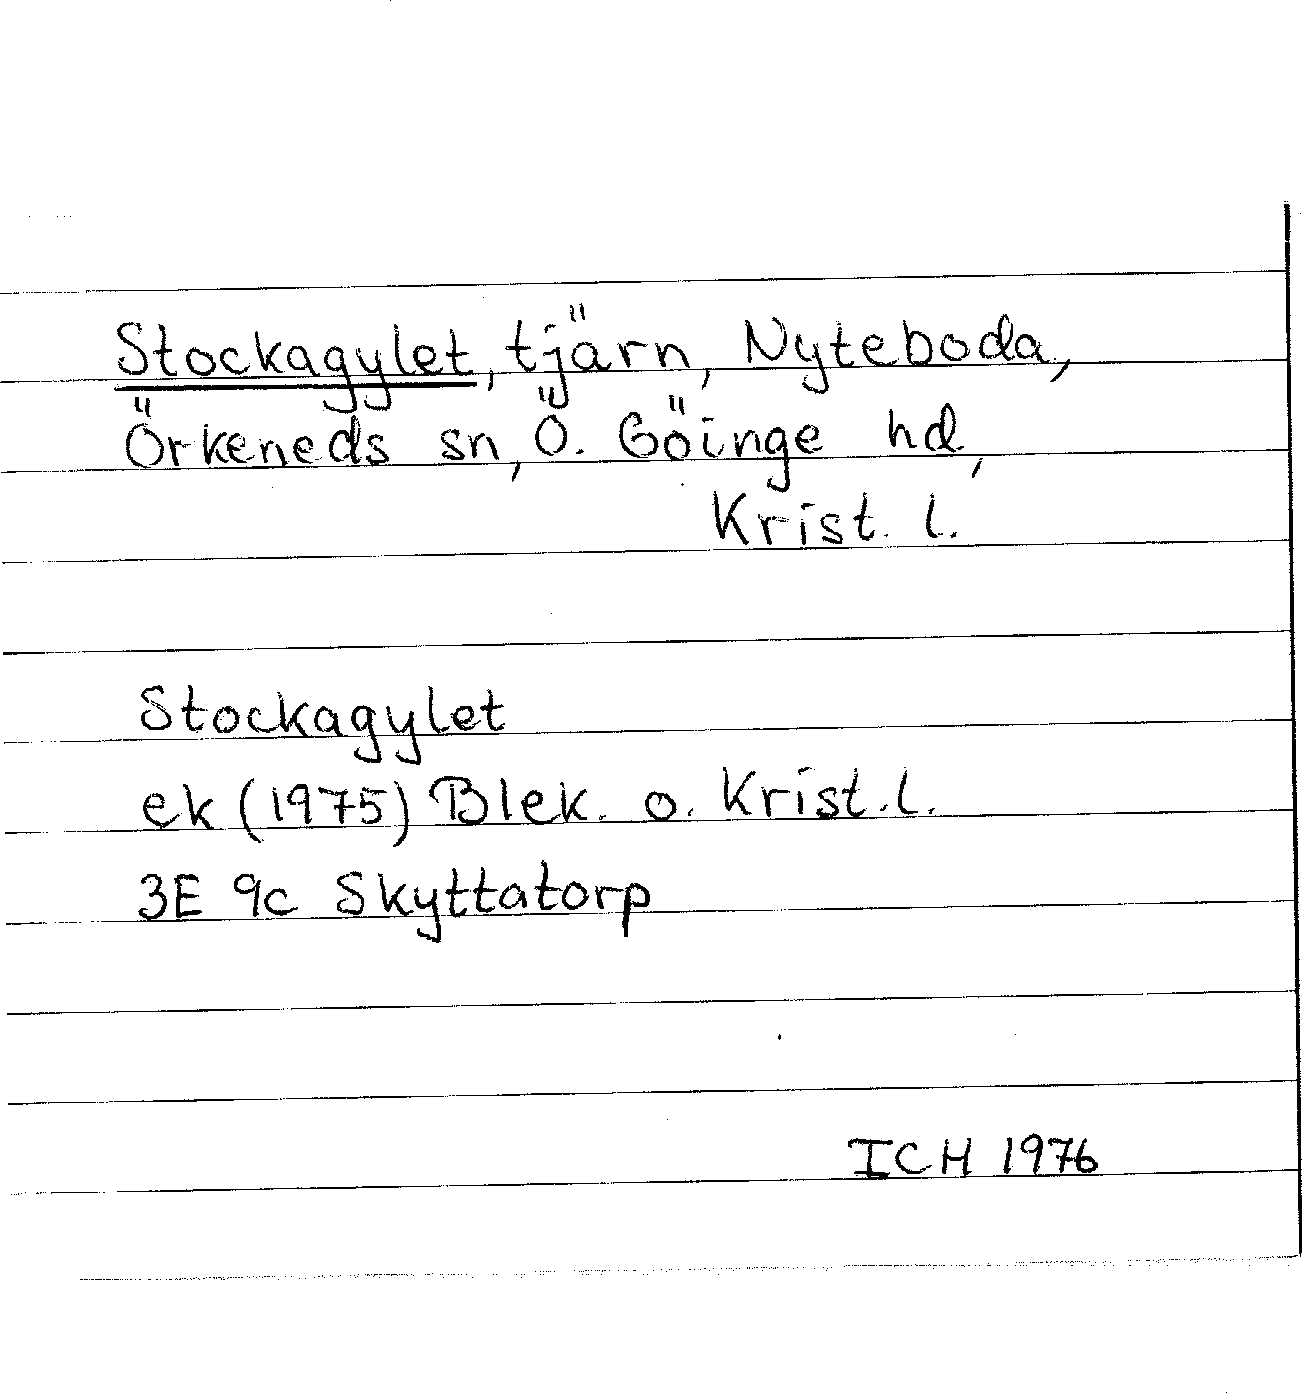 Stockagylet, tjärn, Nyteboda,
Örkeneds sn, Ö. Göinge hd,
Krist. l.
Stockagylet
ek (1975) Blek. o. Krist. l.
3E 9c Skyttatorp
ICH 1976